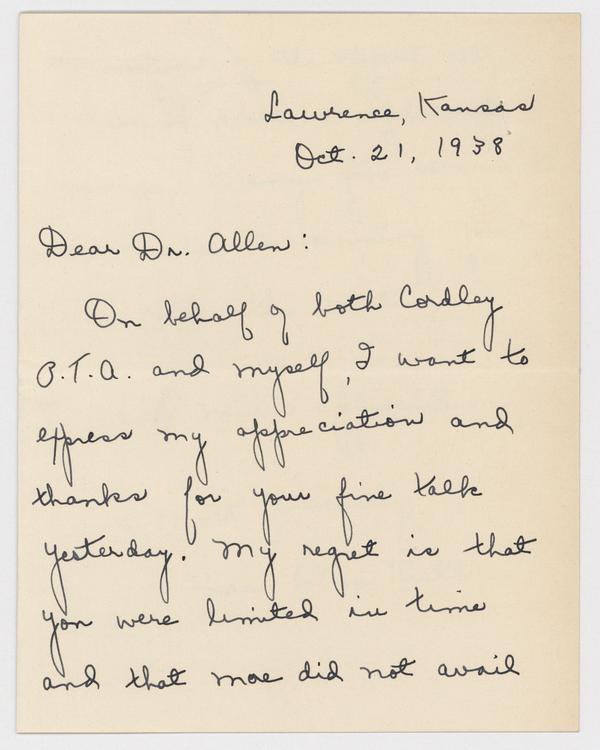 Lawrence, Kansas
Oct. 21, 1938
Dear Dr. Allen:
On behalf of both Cordley
P.T.A. and myself, I want to
express my appreciation and
thanks for your fine talk
yesterday. My regret is that
you were limited in time
and that moe did not avail